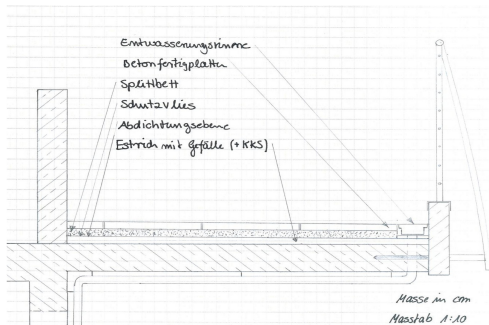 Entwässerungsrinne
Betonfertigplatten
Splittbett
Schutzvlies
Abdichtungsebene
Estrich mit Gefälle (+KKS)
Masse in cm
Masstab 1:10